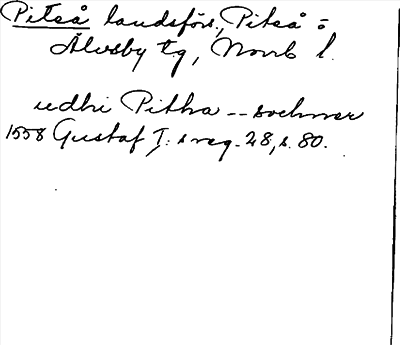 Piteå landsförs., Piteå o
Älvsby tg, Norrb l.
udhi Pitha -- sochner
1558 Gustaf I: s reg. 28, s. 80.